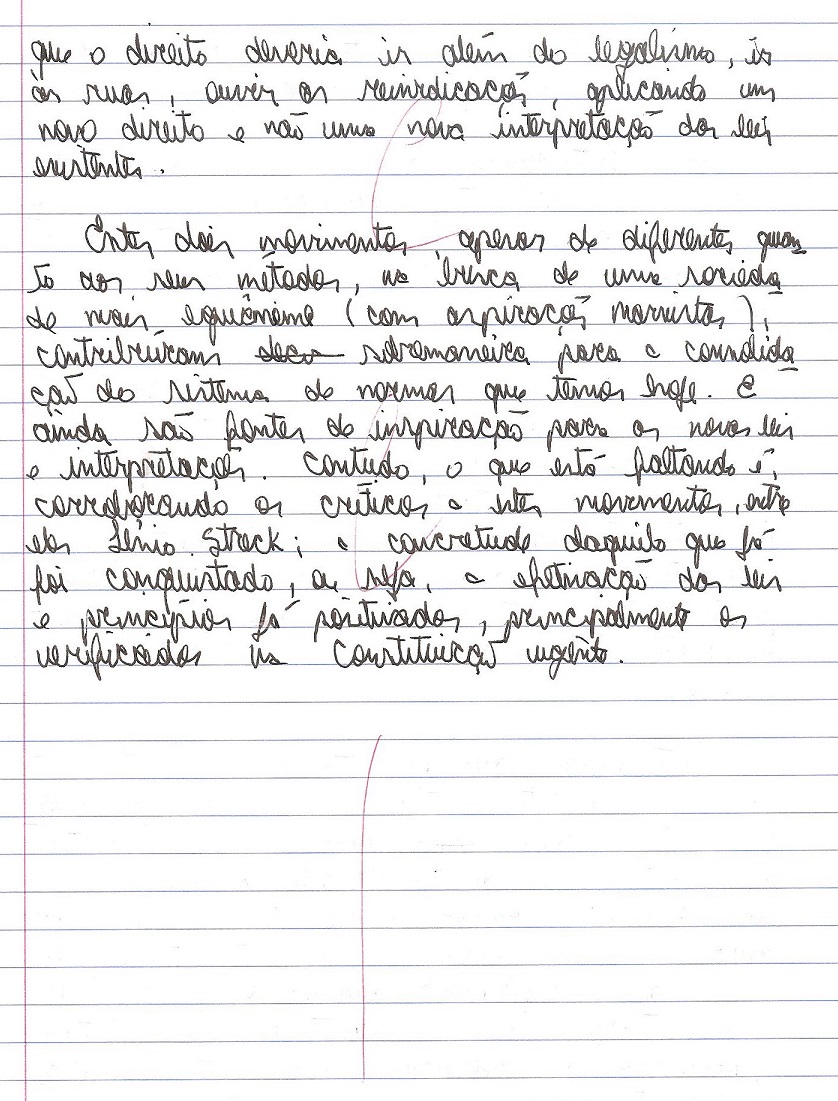 que o direito deveria ir além do legalismo, ir
às ruas, ouvir as reinvidicações, aplicando um
novo direito e não uma nova interpretação das leis
existentes.
Estes dois movimentos, apesar de diferentes quan
to aos seus métodos, na busca de uma socieda
de mais equânime (com aspirações marxistas),
contribuíram sobremaneira para a consolida
ção do sistema de normas que temos hoje. E
ainda são fontes de inspiração para as novas leis
e interpretações. Contudo, o que está faltando é,
corroborando os críticos a estes movimentos, entre
eles Lênio Streck; a concretude daquilo que já
foi conquistado, ou seja, a efetivação das leis
e princípios já positivados, principalmente os
verificados na Constituição vigente.